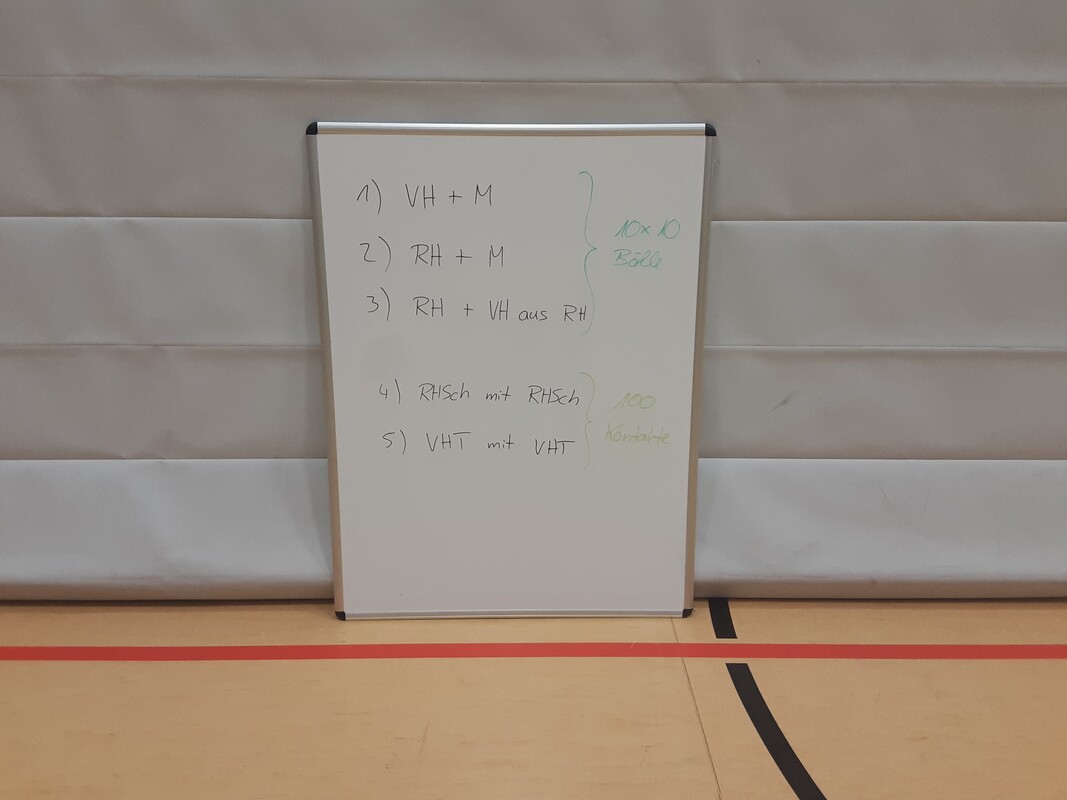 1) VH + M
2) RH + M
3) RH + VH aus RH
10x10
Bälle
4) RHSch mit RHSch
5) VHT mit VHT
100
Kontakte